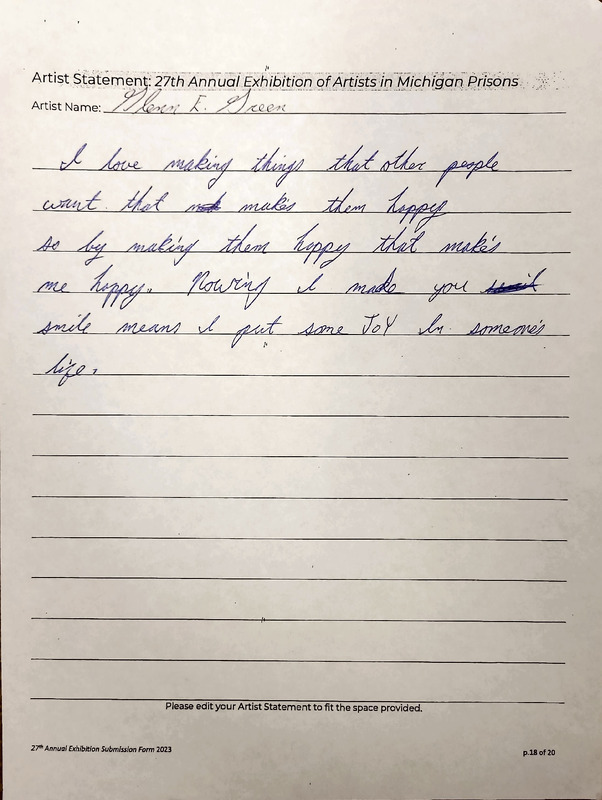 Artist Statement: 27th Annual Exhibition of Artists in Michigan Prisons
Artist Name: Glenn I. Green
I love making things that other people
want. that makes them happy
so by making them happy that make's
me happy. Nowing I made you
smile means I put some JoY In someone's
life.
Please edit your Artist Statement to fit the space provided.
27th Annual Exhibition Submission Form 2023
p.18 of 20